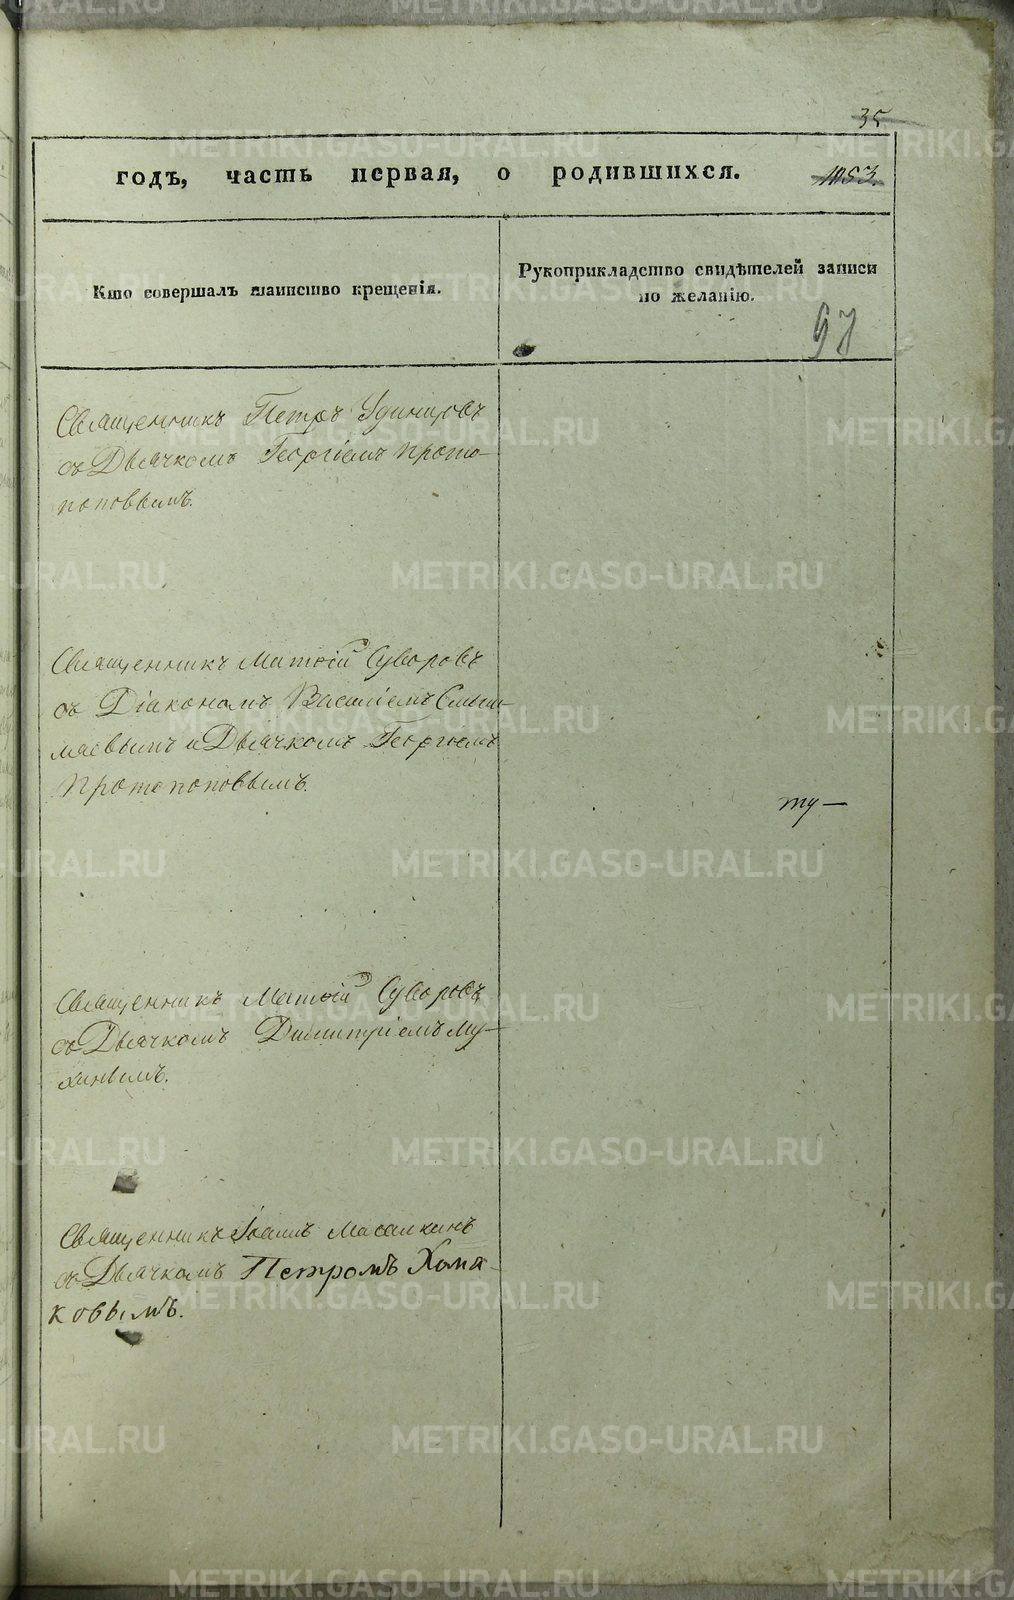 35
годъ, часть первая, о родившихся.
1053.
Кто совершалъ таинство крещенія.
Рукоприкладство свидѣтелей записи
по желанію.
97
Священникъ Петръ Удинцовъ
съ Дьячкомъ Георгіемъ Прото-
поповымъ.
Священникъ Матѳій Суворовъ
съ Діакономъ Василіемъ Смыш-
ляевымъ и Дьячкомъ Георгіемъ
Протопоповымъ.
ту—
Священникъ Матѳій Суворовъ
съ Дьячкомъ Димитріемъ Му-
хинымъ.
Священникъ Іоаннъ Масалкинъ
съ Дьячкомъ Петромъ Хомя-
ковымъ.
METRIKI.GASO-URAL.RU